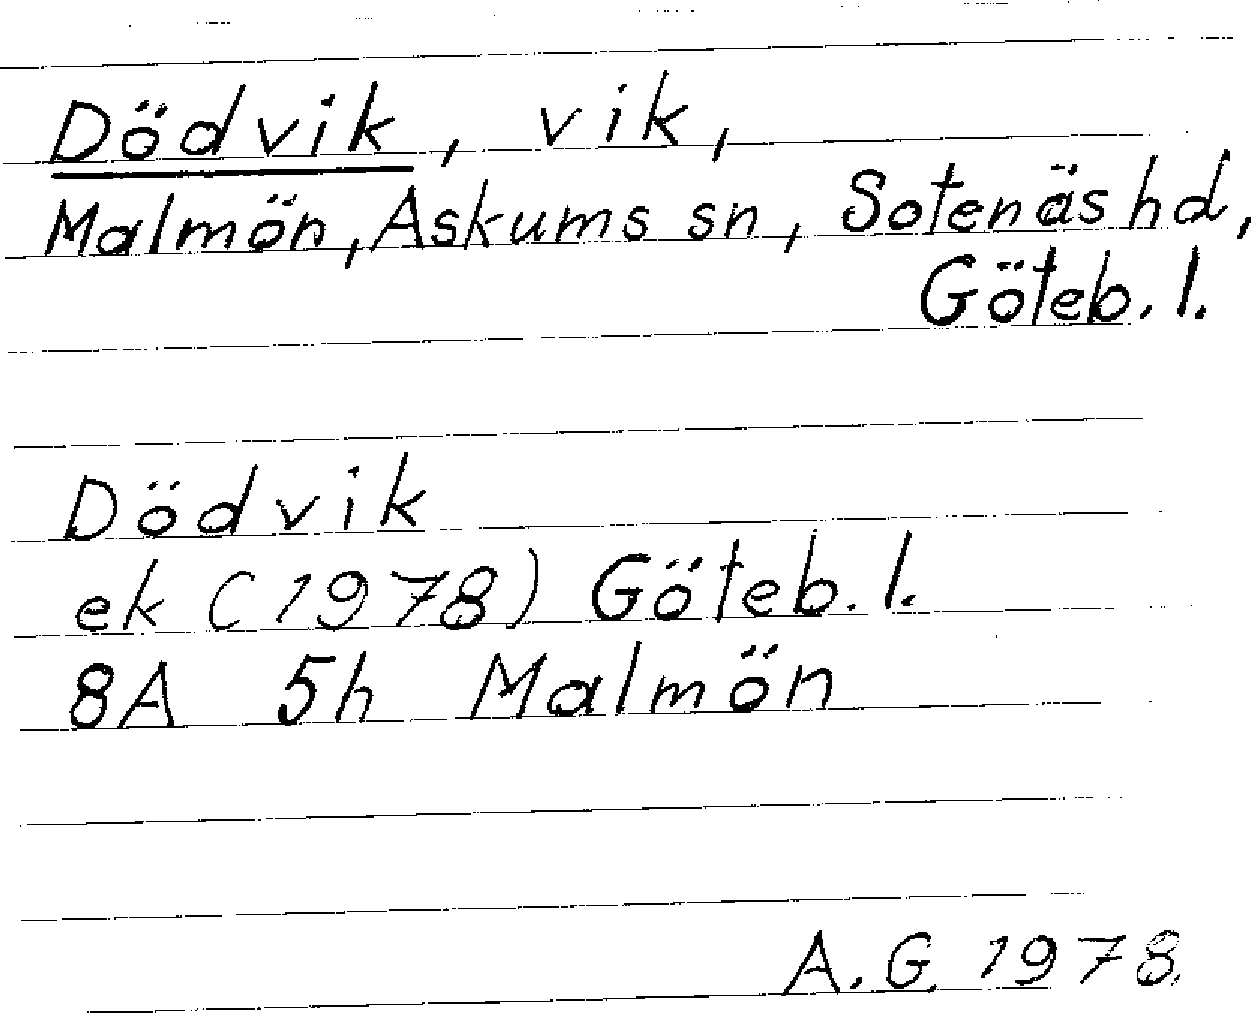 Dödvik, vik,
Malmön, Askums sn, Sotenäs hd,
Göteb. l.
Dödvik
ek (1978) Göteb. l.
8A 5h Malmön
A. G. 1978.